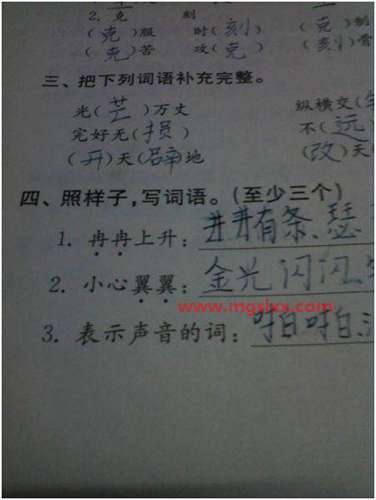 2. 克 刻
(克)服 时(刻) (克)制
(克)苦 攻(克) (刻)骨
三、把下列词语补充完整。
光(芒)万丈 纵横交(
完好无(损) 不(远)
(开)天(辟)地 (改)天
四、照样子,写词语。(至少三个)
1. 冉冉上升: 井井有条、瑟
2. 小心翼翼: 金光闪闪、
www.mgslxx.com
3. 表示声音的词: 呀白呀白、